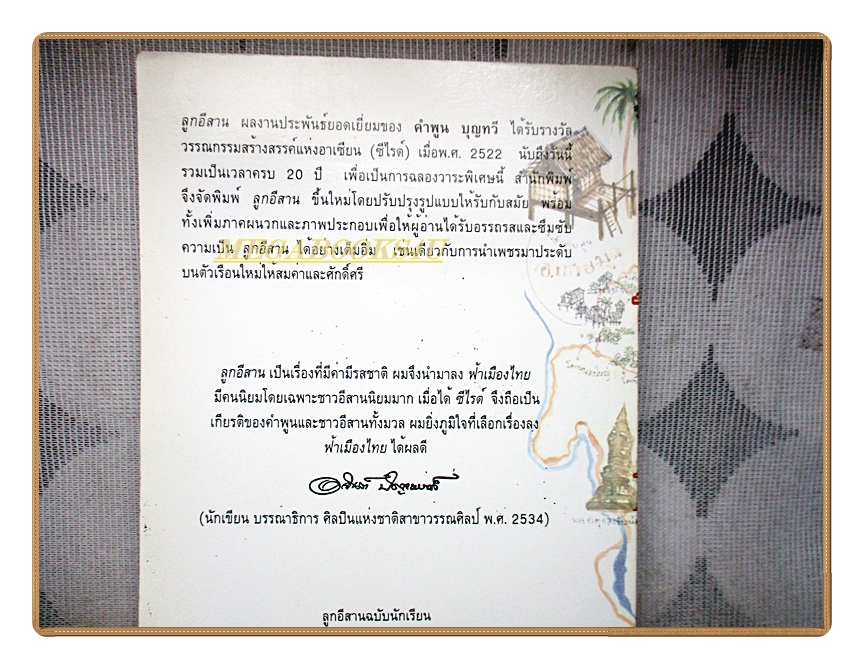 ลูกอีสาน ผลงานประพันธ์ยอดเยี่ยมของ คำพูน บุญทวี ได้รับรางวัล
วรรณกรรมสร้างสรรค์แห่งอาเซียน (ซีไรต์) เมื่อพ.ศ. 2522 นับถึงวันนี้
รวมเป็นเวลาครบ 20 ปี เพื่อเป็นการฉลองวาระพิเศษนี้ สำนักพิมพ์
จึงจัดพิมพ์ ลูกอีสาน ขึ้นใหม่โดยปรับปรุงรูปแบบให้รับกับสมัย พร้อม
ทั้งเพิ่มภาคผนวกและภาพประกอบเพื่อให้ผู้อ่านได้รับอรรถรสและซึมซับ
ความเป็น ลูกอีสาน ได้อย่างเต็มอิ่ม เช่นเดียวกับการนำเพชรมาประดับ
บนตัวเรือนใหม่ให้สมค่าและศักดิ์ศรี
ลูกอีสาน เป็นเรื่องที่มีค่ามีรสชาติ ผมจึงนำมาลง ฟ้าเมืองไทย
มีคนนิยมโดยเฉพาะชาวอีสานนิยมมาก เมื่อได้ ซีไรต์ จึงถือเป็น
เกียรติของคำพูนและชาวอีสานทั้งมวล ผมยิ่งภูมิใจที่เลือกเรื่องลง
ฟ้าเมืองไทย ได้ผลดี
(นักเขียน บรรณาธิการ ศิลปินแห่งชาติสาขาวรรณศิลป์ พ.ศ. 2534)
ลูกอีสานฉบับนักเรียน